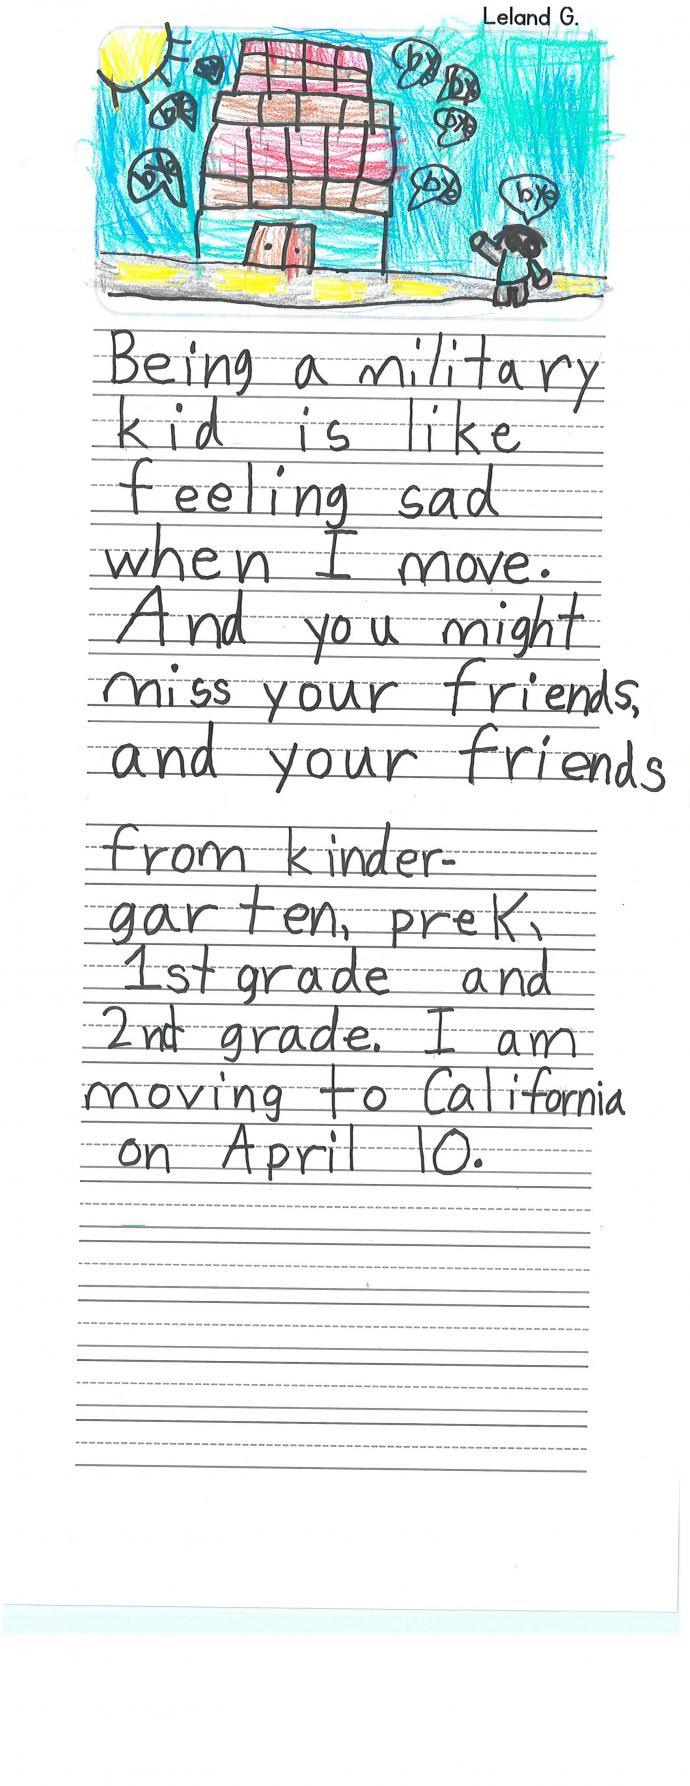 Leland G.
bye
bye
bye
bye
bye
bye
bye
Being a military
kid is like
feeling sad
when I move.
And you might
miss your friends,
and your friends
from kinder-
garten, preK,
1st grade and
2nd grade. I am
moving to California
on April 10.